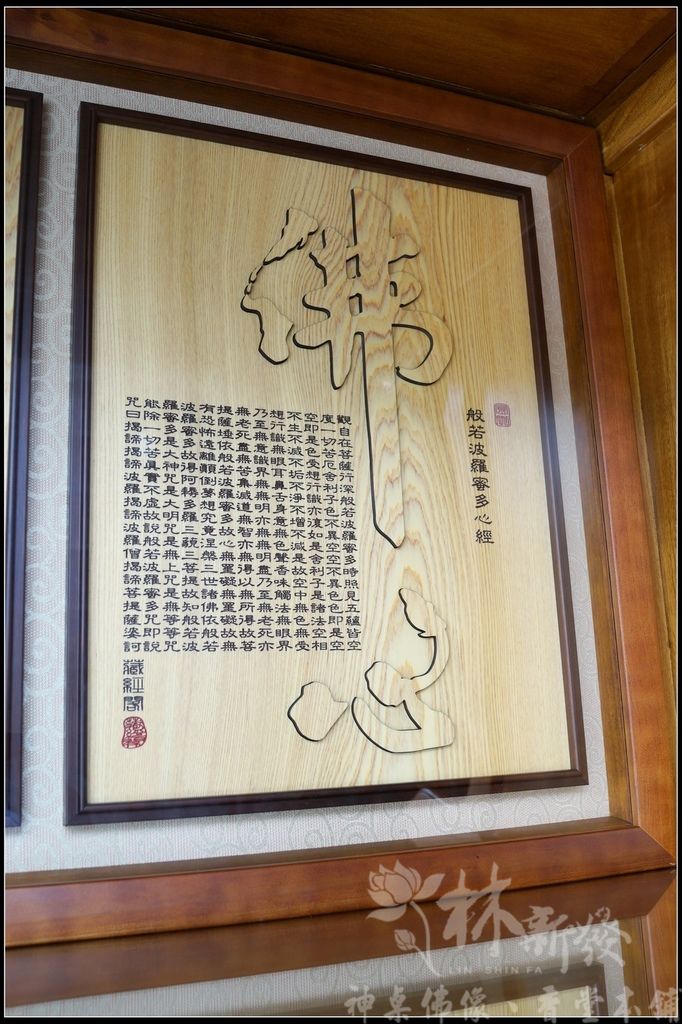 般若波羅蜜多心經
佛心
觀自在菩薩行深般若波羅蜜多時照見五蘊皆空
度一切苦厄舍利子色不異空空不異色色即是空
空即是色受想行識亦復如是舍利子是諸法空相
不生不滅不垢不淨不增不減是故空中無色無受
想行識無眼耳鼻舌身意無色聲香味觸法無眼界
乃至無意識界無無明亦無無明盡乃至無老死亦
無老死盡無苦集滅道無智亦無得以無所得故菩
提薩埵依般若波羅蜜多故心無罣礙無罣礙故無
有恐怖遠離顛倒夢想究竟涅槃三世諸佛依般若
波羅蜜多故得阿耨多羅三藐三菩提故知般若波
羅蜜多是大神咒是大明咒是無上咒是無等等咒
能除一切苦真實不虛故說般若波羅蜜多咒即說
咒曰揭諦揭諦波羅揭諦波羅僧揭諦菩提薩婆訶
藏經閣
林新發
LIN SHIN FA
神桌佛像、香堂本舖